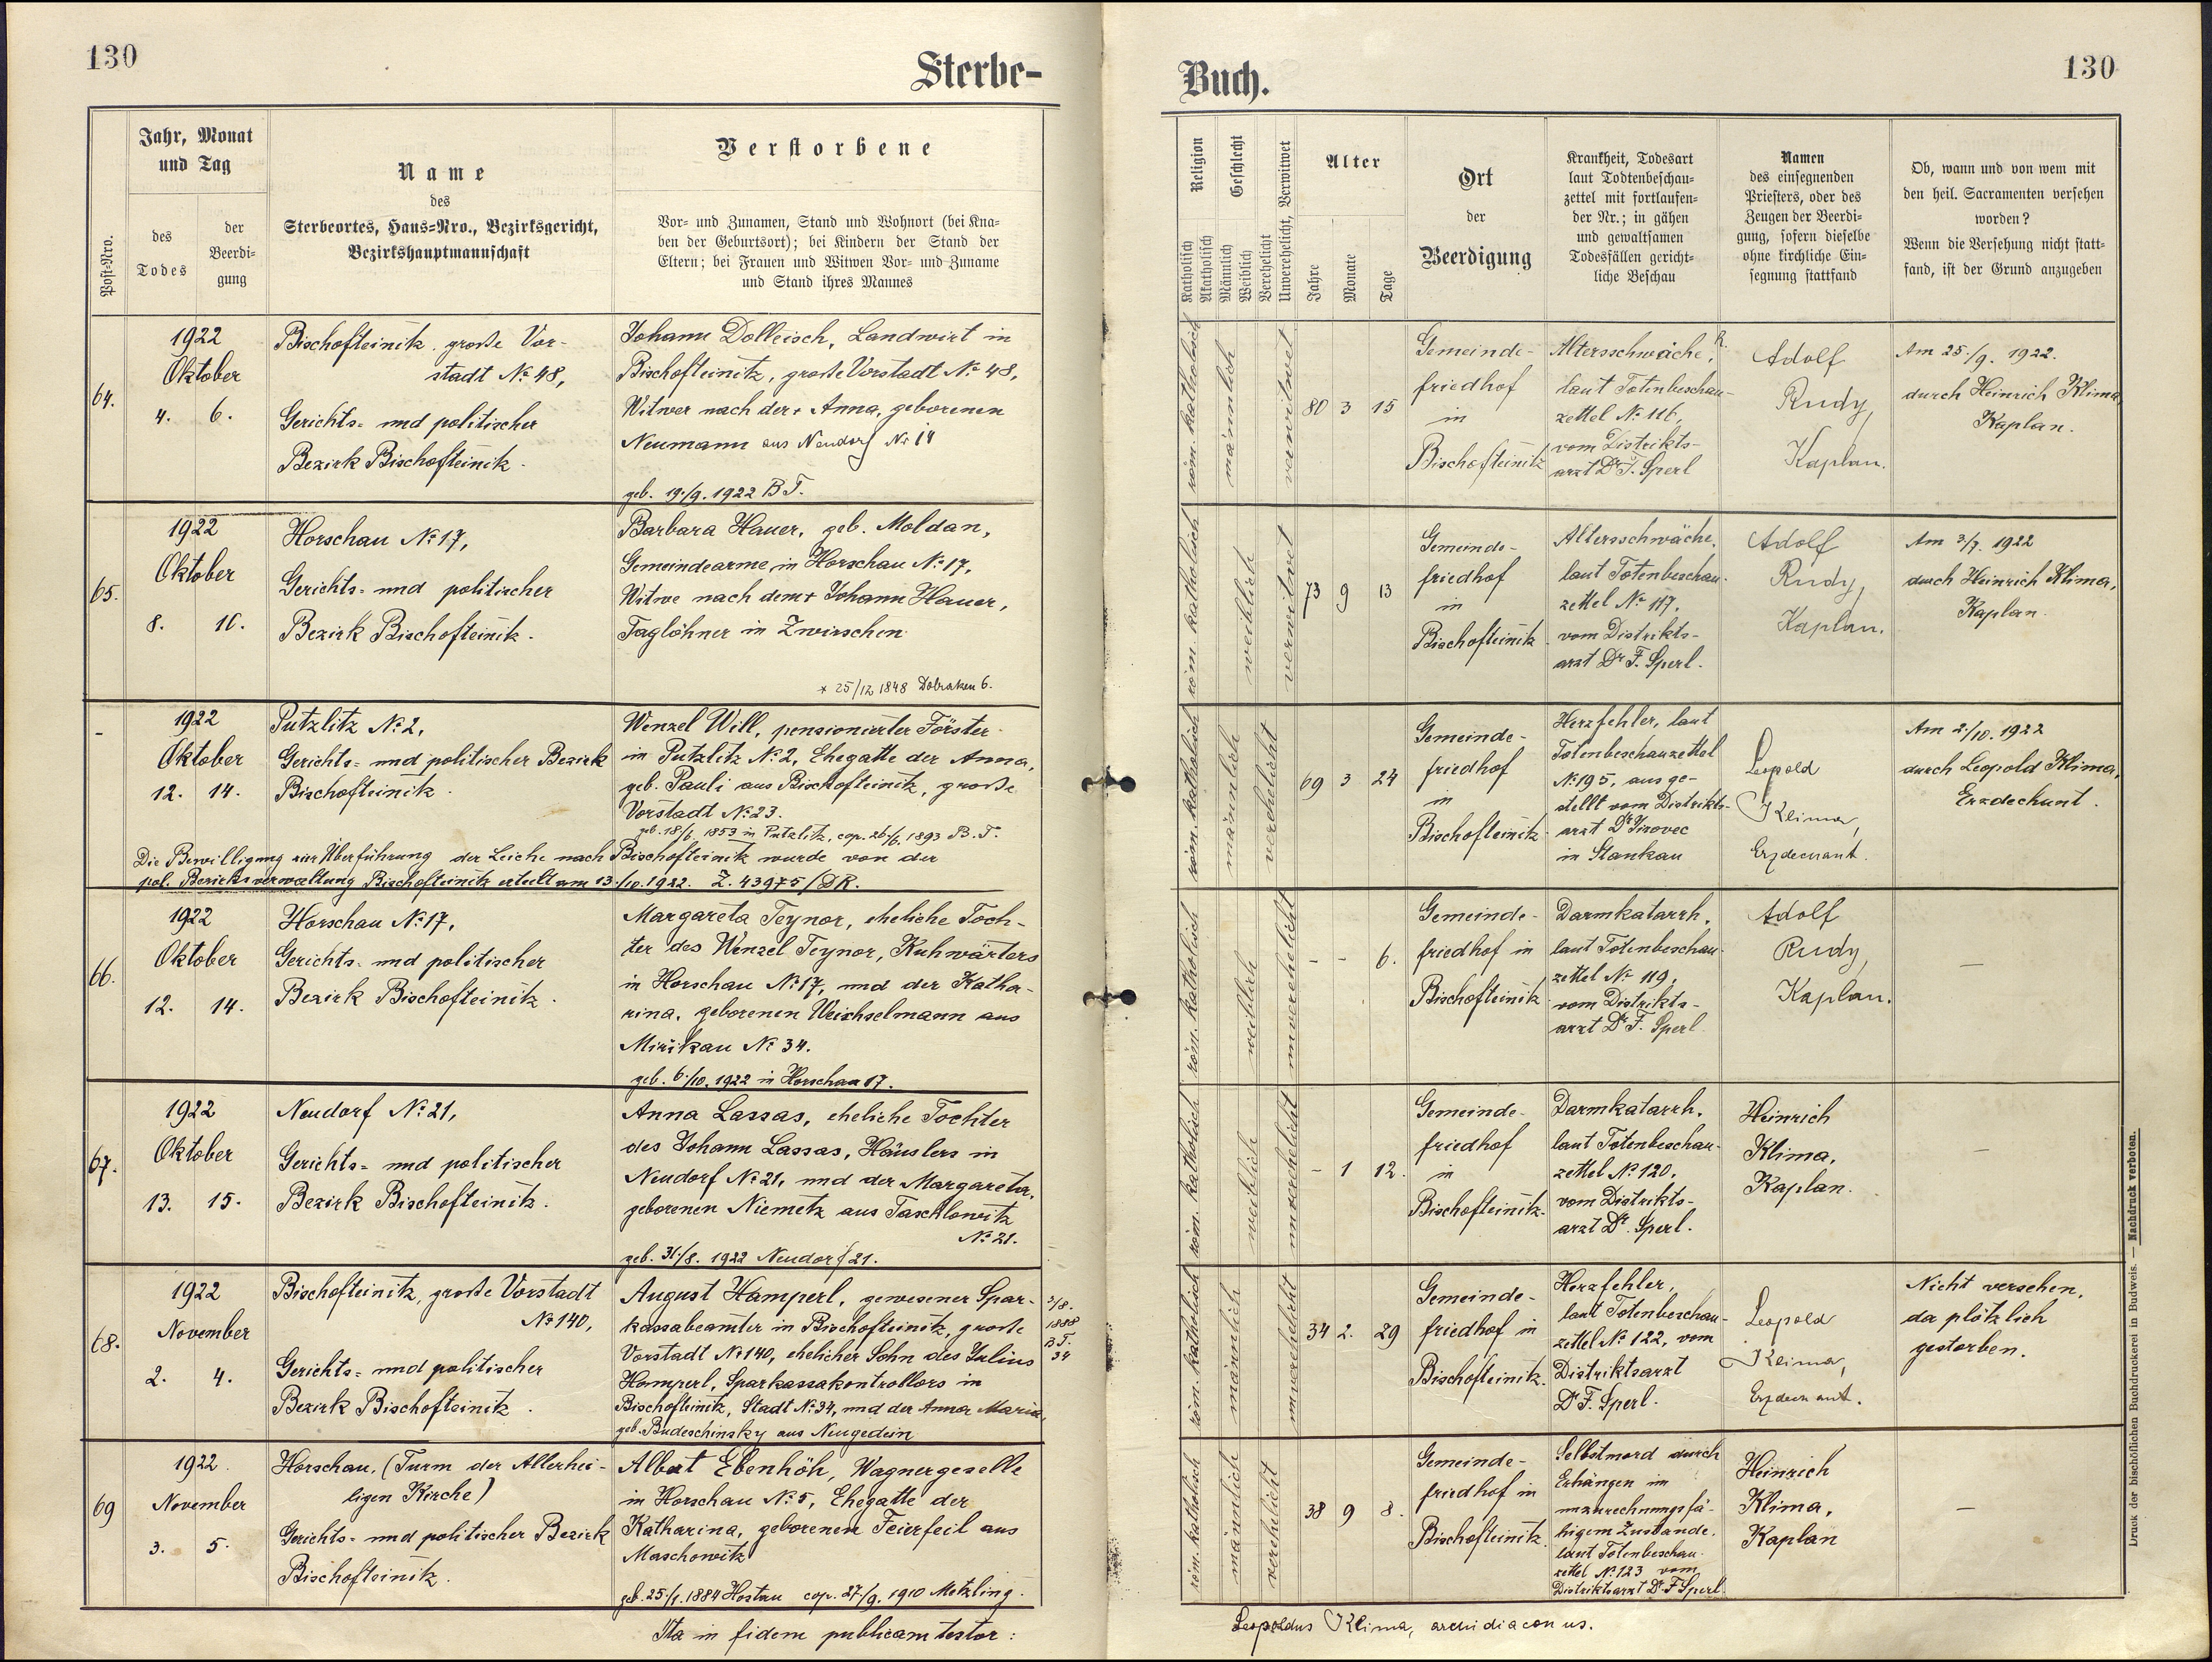 130
Sterbe-
Post-Nro.
Jahr, Monat
und Tag
des
Todes
der
Beerdi-
gung
Name
des
Sterbeortes, Haus-Nro., Bezirksgericht,
Bezirkshauptmannschaft
Verstorbene
Vor- und Zunamen, Stand und Wohnort (bei Kna-
ben der Geburtsort); bei Kindern der Stand der
Eltern; bei Frauen und Witwen Vor- und Zuname
und Stand ihres Mannes
64.
1922
Oktober
4. 6.
Bischofteinitz, große Vor-
stadt No 48,
Gerichts- und politischer
Bezirk Bischofteinitz.
Johann Dolleisch, Landwirt in
Bischofteinitz, große Vorstadt No 48,
Witwer nach der + Anna, geborenen
Neumann aus Neudorf No 14
geb. 19./9. 1922 B T.
65.
1922
Oktober
8. 10.
Horschau No 17,
Gerichts- und politischer
Bezirk Bischofteinitz.
Barbara Hauer, geb. Moldan,
Gemeindearme in Horschau No 17,
Witwe nach dem + Johann Hauer,
Taglöhner in Zwirschen
* 25/12 1848 Dobraken 6.
-
1922
Oktober
12. 14.
Putzlitz No 2,
Gerichts- und politischer Bezirk
Bischofteinitz.
Wenzel Will, pensionierter Förster
in Putzlitz No 2, Ehegatte der Anna,
geb. Pauli aus Bischofteinitz, große
Vorstadt No 23.
geb. 18/6. 1853 in Putzlitz, cop. 26/6. 1893 B. T.
Die Bewilligung zur Überführung der Leiche nach Bischofteinitz wurde von der
pol. Bezirksverwaltung Bischofteinitz erteilt am 13./10. 1922. Z. 43975/DR.
66.
1922
Oktober
12. 14.
Horschau No 17,
Gerichts- und politischer
Bezirk Bischofteinitz.
Margareta Teynor, eheliche Toch-
ter des Wenzel Teynor, Kuhwärters
in Horschau No 17, und der Katha-
rina, geborenen Weichselmann aus
Mirikau No 34.
geb. 6./10. 1922 in Horschau 17.
67.
1922
Oktober
13. 15.
Neudorf No 21,
Gerichts- und politischer
Bezirk Bischofteinitz.
Anna Lassas, eheliche Tochter
des Johann Lassas, Häuslers in
Neudorf No 21, und der Margareta,
geborenen Niemetz aus Taschlowitz
No 21.
geb. 31./8. 1922 Neudorf 21.
68.
1922
November
2. 4.
Bischofteinitz, große Vorstadt
No 140,
Gerichts- und politischer
Bezirk Bischofteinitz.
August Hamperl, gewesener Spar-
kassabeamter in Bischofteinitz, große
Vorstadt No 140, ehelicher Sohn des Julius
Hamperl, Sparkassakontrollors in
Bischofteinitz, Stadt No 34, und der Anna Maria,
geb. Budeschinsky aus Neugedein
3/8.
1888
B T.
34
69
1922.
November
3. 5.
Horschau, (Turm der Allerhei-
ligen Kirche)
Gerichts- und politischer Bezirk
Bischofteinitz.
Albert Ebenhöh, Wagnergeselle
in Horschau No 5, Ehegatte der
Katharina, geborenen Feierfeil aus
Maschowitz
geb. 25/1. 1884 Hostau cop. 27/9. 1910 Metzling.
Ita in fidem publicam testor:
Buch.
130
Religion
Katholisch
Akatholisch
Geschlecht
Männlich
Weiblich
Verehelicht
Unverehelicht, Verwitwet
Alter
Jahre
Monate
Tage
Ort
der
Beerdigung
Krankheit, Todesart
laut Todtenbeschau-
zettel mit fortlaufen-
der Nr.; in gähen
und gewaltsamen
Todesfällen gericht-
liche Beschau
Namen
des einsegnenden
Priesters, oder des
Zeugen der Beerdi-
gung, sofern dieselbe
ohne kirchliche Ein-
segnung stattfand
Ob, wann und von wem mit
den heil. Sacramenten versehen
worden?
Wenn die Versehung nicht statt-
fand, ist der Grund anzugeben
röm. katholisch
männlich
verwitwet
80 3 15
Gemeinde-
friedhof
in
Bischofteinitz
Altersschwäche,
laut Totenbeschau-
zettel No 116,
vom Distrikts-
arzt Dr F. Sperl
Adolf
Rudy,
Kaplan.
Am 25./9. 1922.
durch Heinrich Klima,
Kaplan.
röm. katholisch
weiblich
verwitwet
73 9 13
Gemeinde-
friedhof
in
Bischofteinitz.
Altersschwäche,
laut Totenbeschau-
zettel No 117,
vom Distrikts-
arzt Dr F. Sperl.
Adolf
Rudy,
Kaplan.
Am 3/7. 1922
durch Heinrich Klima,
Kaplan.
röm. katholisch
männlich
verehelicht
69 3 24
Gemeinde-
friedhof
in
Bischofteinitz.
Herzfehler, laut
Totenbeschauzettel
No 195, ausge-
stellt vom Distrikts-
arzt Dr Jirovec
in Stankau
Leopold
Klima,
Erzdechant.
Am 2/10. 1922
durch Leopold Klima,
Erzdechant.
röm. katholisch
weiblich
unverehelicht
- - 6.
Gemeinde-
friedhof in
Bischofteinitz
Darmkatarrh,
laut Totenbeschau-
zettel No 119,
vom Distrikts-
arzt Dr F. Sperl
Adolf
Rudy,
Kaplan.
—
röm. katholisch
weiblich
unverehelicht
- 1 12.
Gemeinde-
friedhof
in
Bischofteinitz.
Darmkatarrh,
laut Totenbeschau-
zettel No 120,
vom Distrikts-
arzt Dr. Sperl.
Heinrich
Klima,
Kaplan.
—
röm. katholisch
männlich
unverehelicht
34 2. 29
Gemeinde-
friedhof in
Bischofteinitz.
Herzfehler,
laut Totenbeschau-
zettel No 122, vom
Distriktsarzt
Dr F. Sperl.
Leopold
Klima,
Erzdechant.
Nicht versehen,
da plötzlich
gestorben.
röm. katholisch
männlich
verehelicht
38 9 8.
Gemeinde-
friedhof in
Bischofteinitz.
Selbstmord durch
Erhängen im
unzurechnungsfä-
higem Zustande.
laut Totenbeschau-
zettel No 123 vom
Distriktsarzt Dr F Sperl
Heinrich
Klima,
Kaplan
—
Leopoldus Klima, archidiaconus.
Druck der bischöflichen Buchdruckerei in Budweis. — Nachdruck verboten.